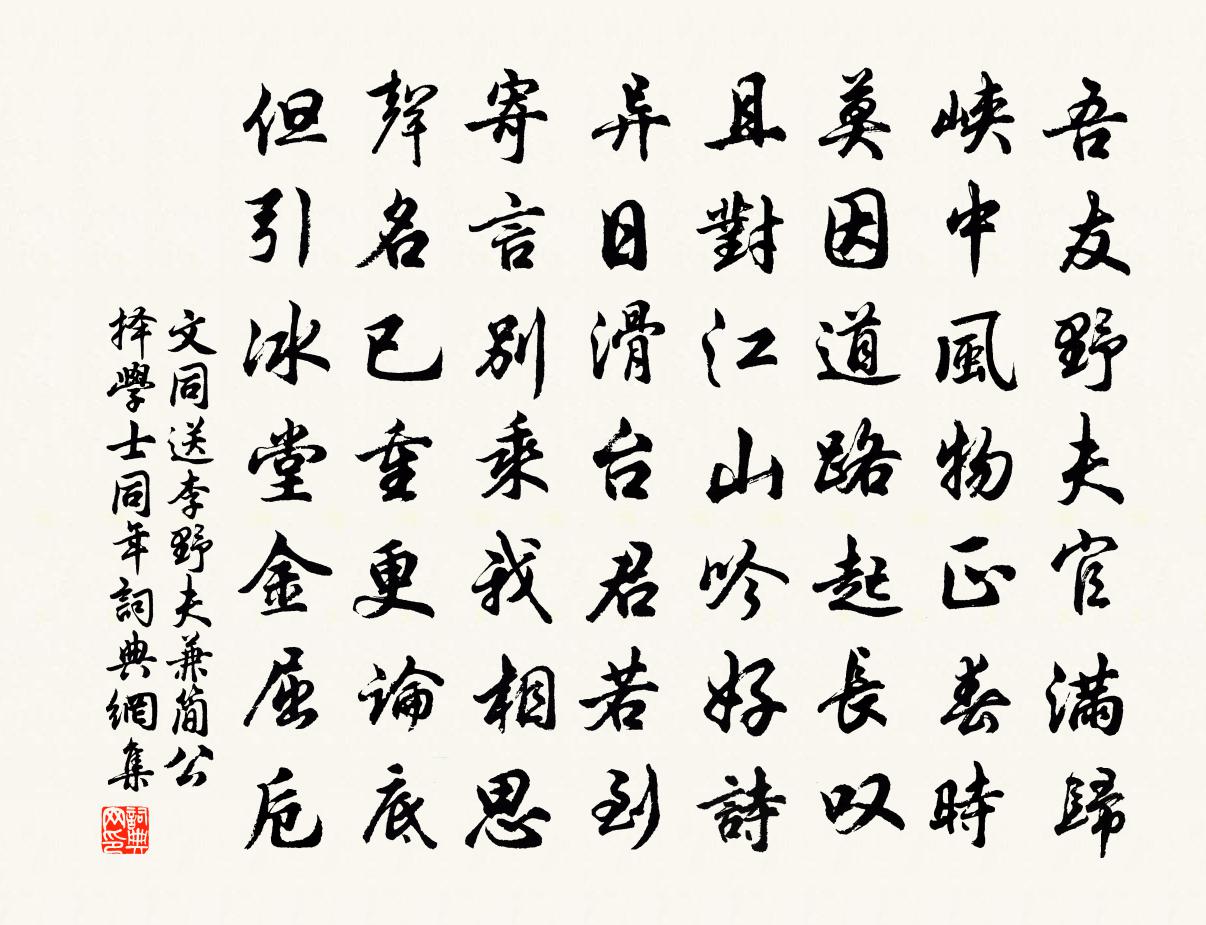 吾友野夫官滿歸
峽中風物正春時
莫因道路起長叹
且對江山吟好詩
异日滑台君若到
寄言別乘我相思
聲名已重更論底
但引冰堂金屈卮
文同送李野夫兼簡公
择學士同年詞典網集
詞典网印